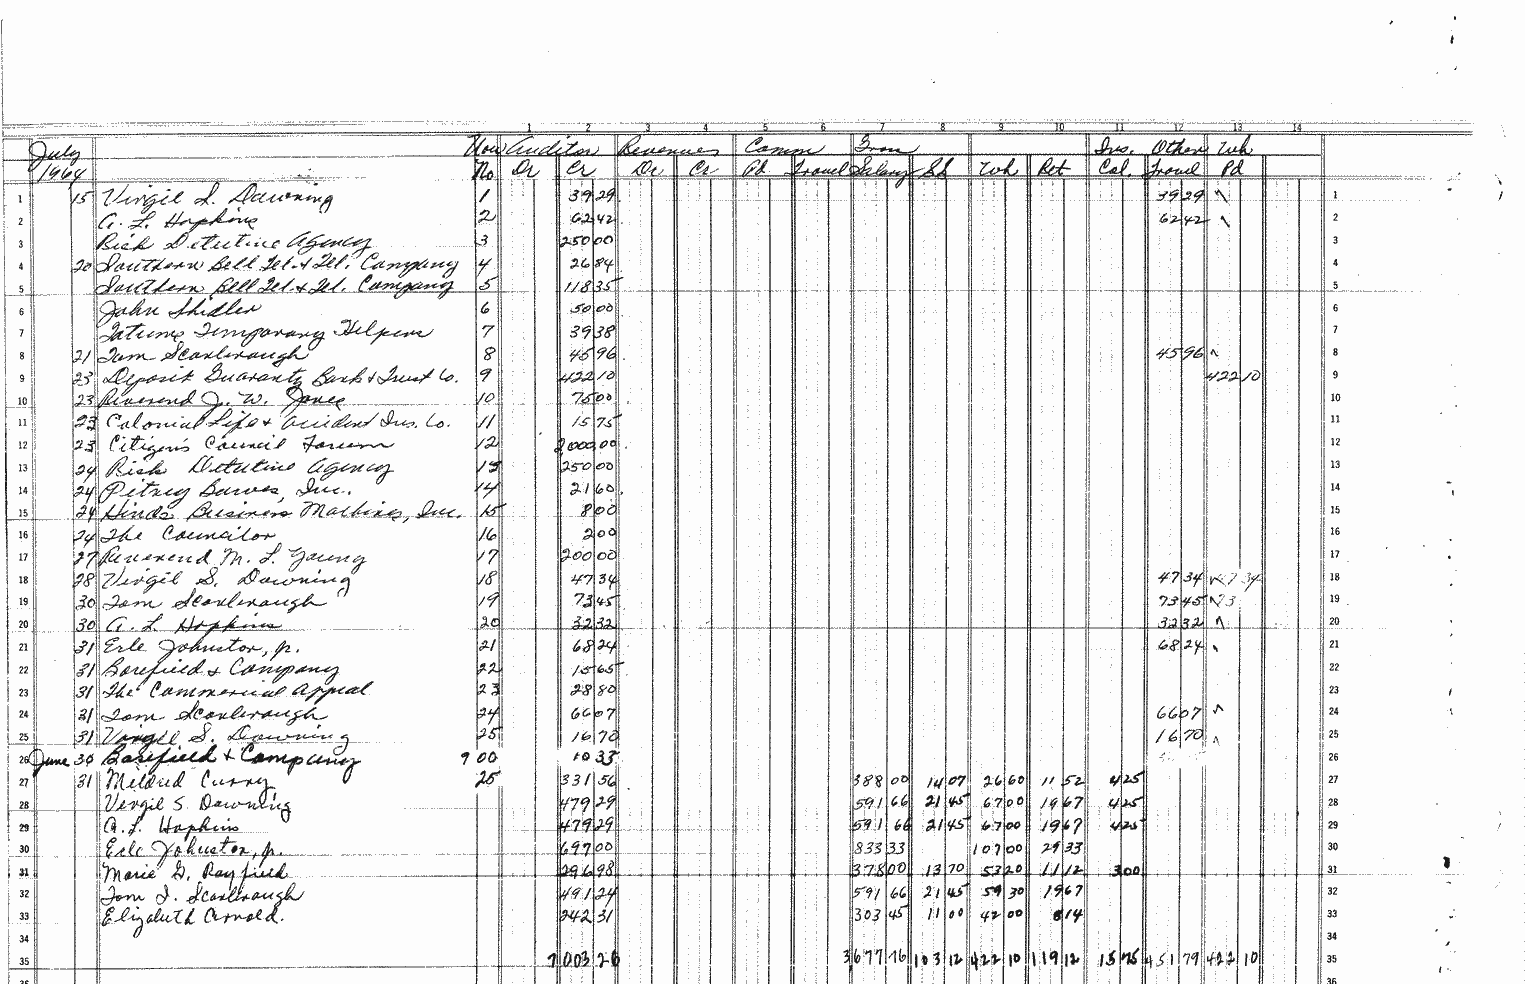 1 2 3 4 5 6 7 8 9 10 11 12 13 14
July Auditor Revenues Comm Ins. Other Wh
1964 No. Dr Cr Dr Cr Pd Travel Salary SS Wh Ret Col. Travel Pd
1 15 Virgil S. Downing 1 39 29 39 29 1
2 A. L. Hopkins 2 62 42 62 42 2
3 Risk Detective Agency 3 250 00 3
4 20 Southern Bell Tel. & Tel. Company 4 26 84 4
5 Southern Bell Tel. & Tel. Company 5 118 35 5
6 John Shidler 6 50 00 6
7 Tatums Temporary Helpers 7 39 38 7
8 21 Tom Scarbrough 8 45 96 45 96 8
9 23 Deposit Guaranty Bank & Trust Co. 9 422 10 422 10 9
10 23 Reverend J. W. Jones 10 75 00 10
11 23 Colonial Life & Accident Ins. Co. 11 15 75 11
12 23 Citizen's Council Forum 12 2,000 00 12
13 24 Risk Detective Agency 13 250 00 13
14 24 Pitney Bowes, Inc. 14 21 60 14
15 24 Hinds Business Machines, Inc. 15 8 00 15
16 24 The Councilor 16 2 00 16
17 27 Reverend M. L. Young 17 200 00 17
18 28 Virgil S. Downing 18 47 34 47 34 18
19 30 Tom Scarbrough 19 73 45 73 45 19
20 30 A. L. Hopkins 20 32 32 32 32 20
21 31 Erle Johnston, Jr. 21 68 24 68 24 21
22 31 Barefield & Company 22 15 65 22
23 31 The Commercial Appeal 23 28 80 23
24 31 Tom Scarbrough 24 66 07 66 07 24
25 31 Virgil S. Downing 25 16 70 16 70 25
26 June 30 Barefield & Company 900 10 33 26
27 31 Mildred Curry 25 331 56 388 00 14 07 26 60 11 52 4 25 27
28 Virgil S. Downing 479 29 591 66 21 45 67 00 19 67 4 25 28
29 A. L. Hopkins 479 29 591 66 21 45 67 00 19 67 4 25 29
30 Erle Johnston, Jr. 697 00 833 33 107 00 29 33 30
31 Marie G. Rayfield 296 98 378 00 13 70 53 20 11 12 3 00 31
32 Tom I. Scarbrough 491 24 591 66 21 45 59 30 19 67 32
33 Elizabeth Arnold. 242 31 303 45 11 00 42 00 8 14 33
34 34
35 7 003 26 3 677 76 103 12 422 10 119 12 15 75 451 79 422 10 35
36